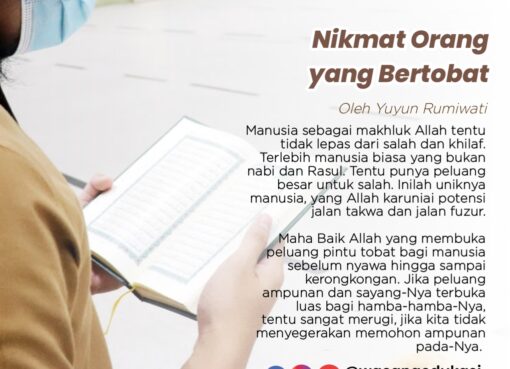 Nikmat Orang
yang Bertobat
Oleh Yuyun Rumiwati
Manusia sebagai makhluk Allah tentu
tidak lepas dari salah dan khilaf.
Terlebih manusia biasa yang bukan
nabi dan Rasul. Tentu punya peluang
besar untuk salah. Inilah uniknya
manusia, yang Allah karuniai potensi
jalan takwa dan jalan fuzur.
Maha Baik Allah yang membuka
peluang pintu tobat bagi manusia
sebelum nyawa hingga sampai
kerongkongan. Jika peluang
ampunan dan sayang-Nya terbuka
luas bagi hamba-hamba-Nya,
tentu sangat merugi, jika kita tidak
menyegerakan memohon ampunan
pada-Nya.